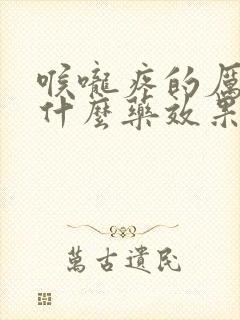 喉嚨疼的厲
什麼藥效果
萬古遺民